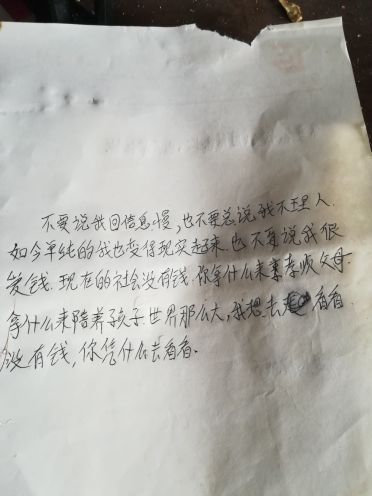 不要说我回信息慢,也不要总说我不理人.
如今单纯的我也变得现实起来.也不要说我很
爱钱.现在的社会没有钱.你拿什么来孝顺父母.
拿什么来陪养孩子.世界那么大,我想去看看.
没有钱,你凭什么去看看.